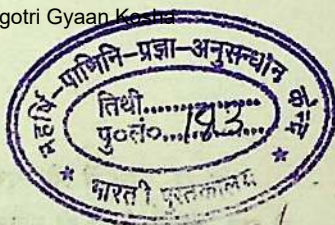 gotri Gyaan Kosha
महर्षि-पाणिनि-प्रज्ञा-अनुसन्धान केन्द्र
तिथी..................
पु०लं०....193....
भारती पुस्तकालय